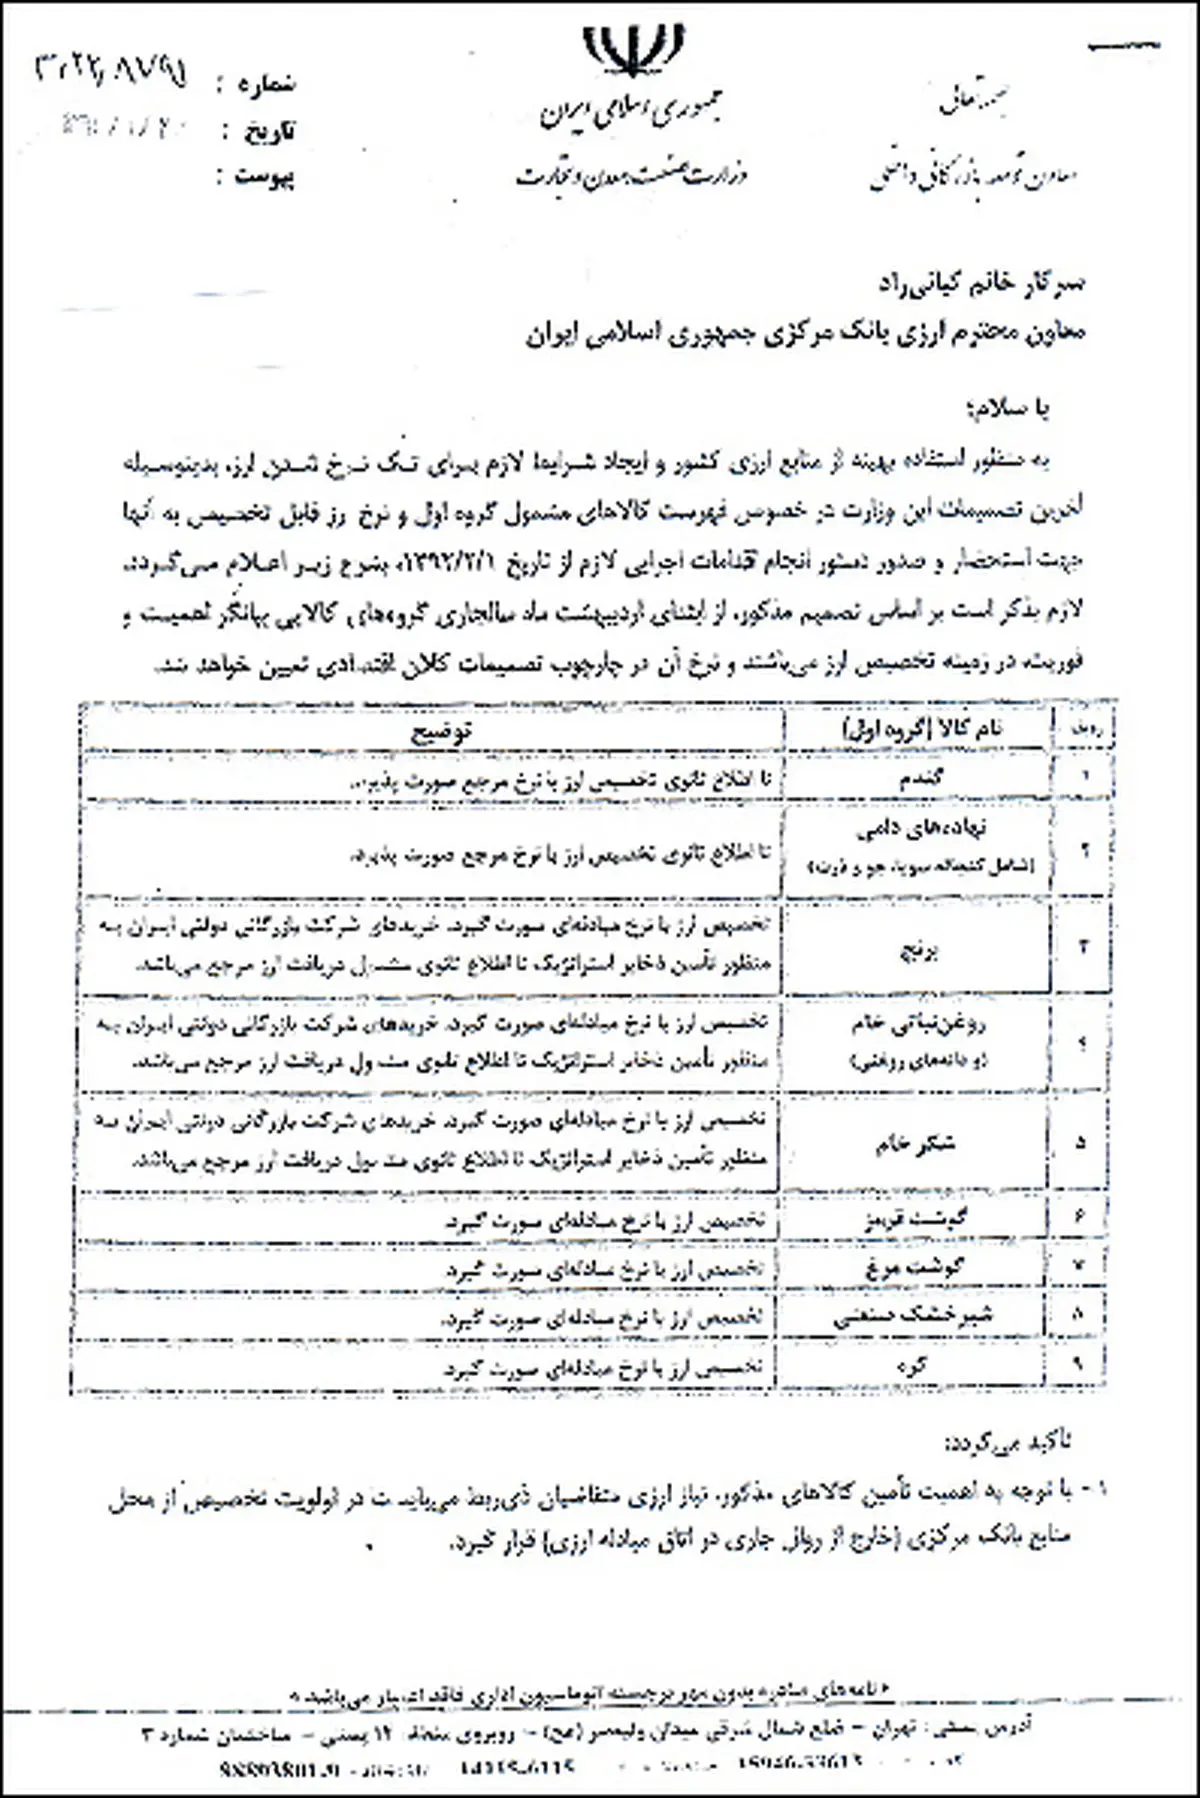 بسمه تعالی
جمهوری اسلامی ایران
وزارت صنعت، معدن و تجارت
معاون توسعه بازرگانی داخلی
شماره :
تاریخ :
پیوست :
سرکار خانم کیانی‌راد
معاون محترم ارزی بانک مرکزی جمهوری اسلامی ایران
با سلام؛
به منظور استفاده بهینه از منابع ارزی کشور و ایجاد شرایط لازم برای تک نرخ شدن ارز، بدینوسیله
آخرین تصمیمات این وزارت در خصوص فهرست کالاهای مشمول گروه اول و نرخ ارز قابل تخصیص به آنها
جهت استحضار و صدور دستور انجام اقدامات اجرایی لازم از تاریخ ۱۳۹۲/۲/۱، بشرح زیر اعلام می‌گردد.
لازم بذکر است بر اساس تصمیم مذکور، از ابتدای اردیبهشت ماه سالجاری گروه‌های کالایی بیانگر اهمیت و
فوریت، در زمینه تخصیص ارز می‌باشند و نرخ آن در چارچوب تصمیمات کلان اقتصادی تعیین خواهد شد.
ردیف نام کالا (گروه اول) توضیح
۱ گندم تا اطلاع ثانوی تخصیص ارز با نرخ مرجع صورت پذیرد.
۲ نهاده‌های دامی
(شامل کنجاله سویا، جو و ذرت) تا اطلاع ثانوی تخصیص ارز با نرخ مرجع صورت پذیرد.
۳ برنج تخصیص ارز با نرخ مبادله‌ای صورت گیرد. خریدهای شرکت بازرگانی دولتی ایران به
منظور تأمین ذخایر استراتژیک تا اطلاع ثانوی مشمول دریافت ارز مرجع می‌باشد.
۴ روغن‌نباتی خام تخصیص ارز با نرخ مبادله‌ای صورت گیرد. خریدهای شرکت بازرگانی دولتی ایران به
(و دانه‌های روغنی) منظور تأمین ذخایر استراتژیک تا اطلاع ثانوی مشمول دریافت ارز مرجع می‌باشد.
۵ شکر خام تخصیص ارز با نرخ مبادله‌ای صورت گیرد. خریدهای شرکت بازرگانی دولتی ایران به
منظور تأمین ذخایر استراتژیک تا اطلاع ثانوی مشمول دریافت ارز مرجع می‌باشد.
۶ گوشت قرمز تخصیص ارز با نرخ مبادله‌ای صورت گیرد.
۷ گوشت مرغ تخصیص ارز با نرخ مبادله‌ای صورت گیرد.
۸ شیرخشک صنعتی تخصیص ارز با نرخ مبادله‌ای صورت گیرد.
۹ کره تخصیص ارز با نرخ مبادله‌ای صورت گیرد.
تأکید می‌گردد:
۱- با توجه به اهمیت تأمین کالاهای مذکور، نیاز ارزی متقاضیان ذی‌ربط می‌بایست در اولویت تخصیص از محل
منابع بانک مرکزی (خارج از روال جاری در اتاق مبادله ارزی) قرار گیرد.
* نامه‌های صادره بدون مهر برجسته اتوماسیون اداری فاقد اعتبار می‌باشد *
آدرس پستی: تهران - ضلع شمال شرقی میدان ولیعصر (عج) - روبروی منطقه ۱۲ پستی - ساختمان شماره ۳